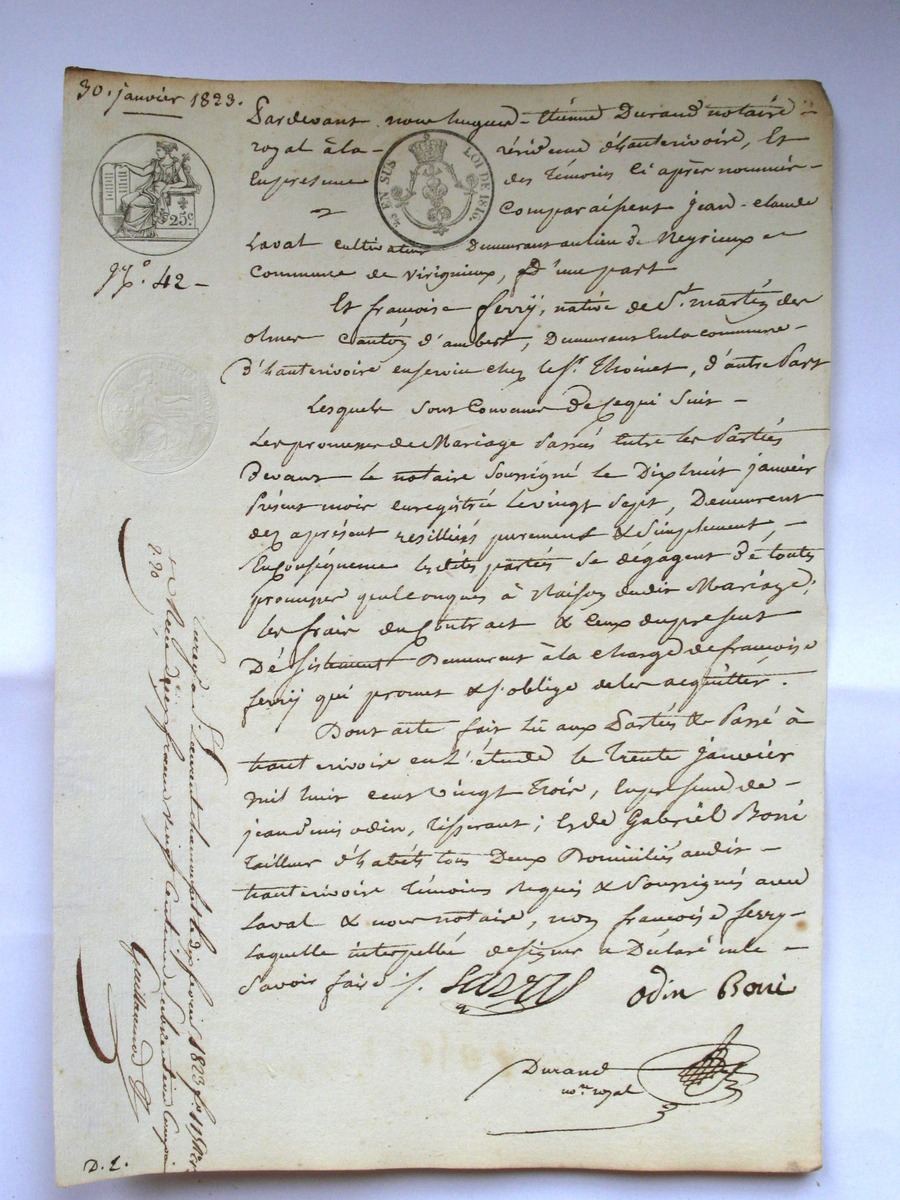 30. janvier 1823.
25c.
EN SUS LOI DE 1816.
No. 42 -
Pardevant nous hugue-Etienne Durand notaire
royal à la résidence d'hauterivoire, Et
En présence des Témoins ci après nommés
Comparaissent jean-claude
Laval cultivateur Demeurant au lieu de Neyrieux
Commune de Virignieux, d'une part
Et françoise ferrÿ, native de St. martin des
olmes Canton d'ambert, Demeurant en la commune
d'hauterivoire en service chez le Sr. Thoinet, d'autre Part
Lesquels sont Convenus de ce qui suit -
Les promesses de Mariage Passées entre les Parties
Devant le notaire soussigné le Dixhuit janvier
Présent mois enregistrées le vingt sept, Demeurent
dez aprésent resilliées purement & Simplement, -
En conséquence les dites parties se dégagent de toutes
promesses quelconques à Raison dudit Mariage;
les frais du Contrat & ceux du present
Désistement Demeurant à la charge de françoise
ferrÿ qui promet & s'oblige de les acquitter.
Dont acte fait lu aux Parties & Passé à
hauterivoire en l'étude le Trente janvier
mil huit cent vingt trois, En présence de
jean denis odin, tisserant; & de Gabriël Boné
tailleur d'habits tous Deux Domiciliés audit
hauterivoire Témoins Requis & Soussignés avec
Laval & nous notaire, non françoise ferry
laquelle interpellée de signer a Déclaré ne le
Savoir faire ;.
odin Boné
Durand
nore royal
Enregistré à St Laurent chamousset le dix fevrier 1823 fo
Reçu deux francs vingt centimes Subvention Comprise
2.20
Guillermod
D. L.